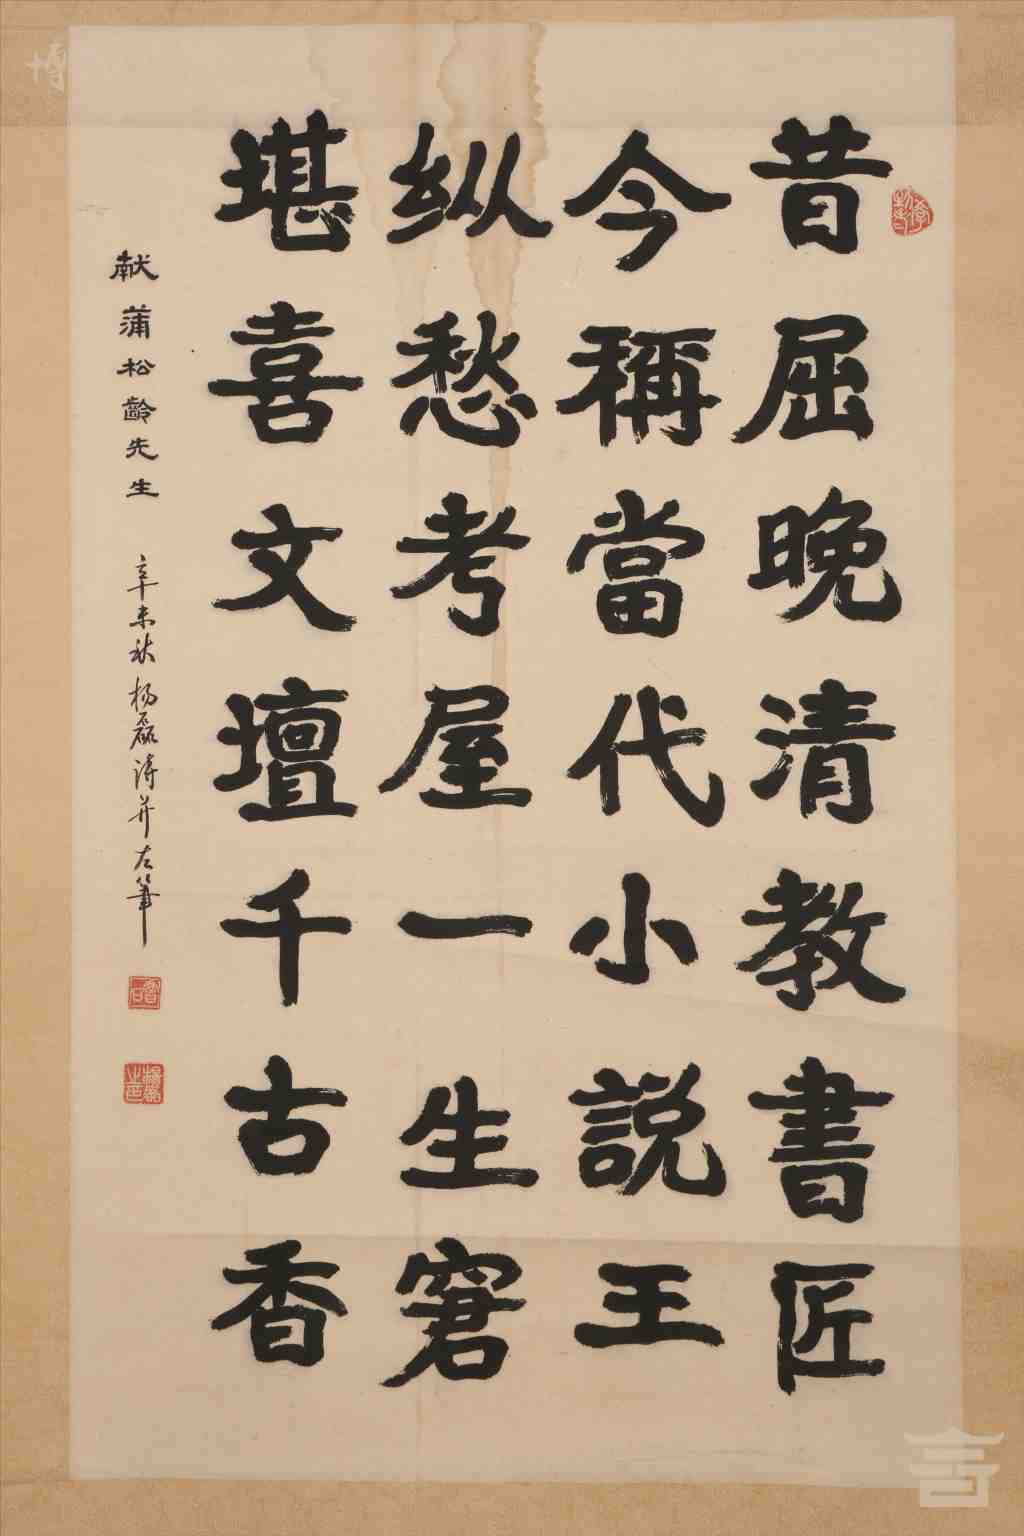 昔屈晚清教書匠
今稱當代小説王
纵愁考屋一生窘
堪喜文壇千古香
献蒲松齡先生
辛未秋杨磊诗并左筆